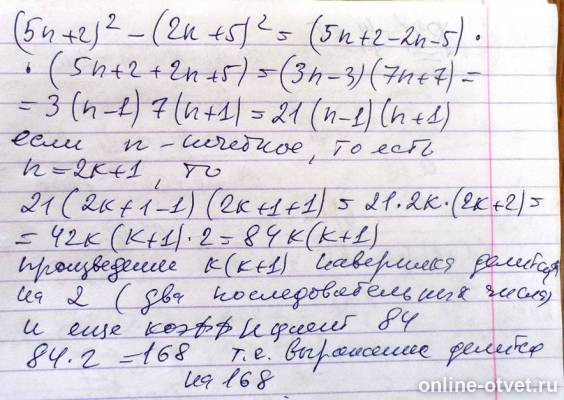 (5n+2)² − (2n+5)² = (5n+2−2n−5) ·
· (5n+2+2n+5) = (3n−3)(7n+7) =
= 3(n−1) 7(n+1) = 21(n−1)(n+1)
если n - нечетное, то есть
n = 2k+1, то
21(2k+1−1)(2k+1+1) = 21·2k·(2k+2) =
= 42k(k+1)·2 = 84k(k+1)
произведение k(k+1) наверняка делится
на 2 (два последовательных числа)
и еще коэффициент 84
84·2 = 168 т.е. выражение делится
на 168
online-otvet.ru